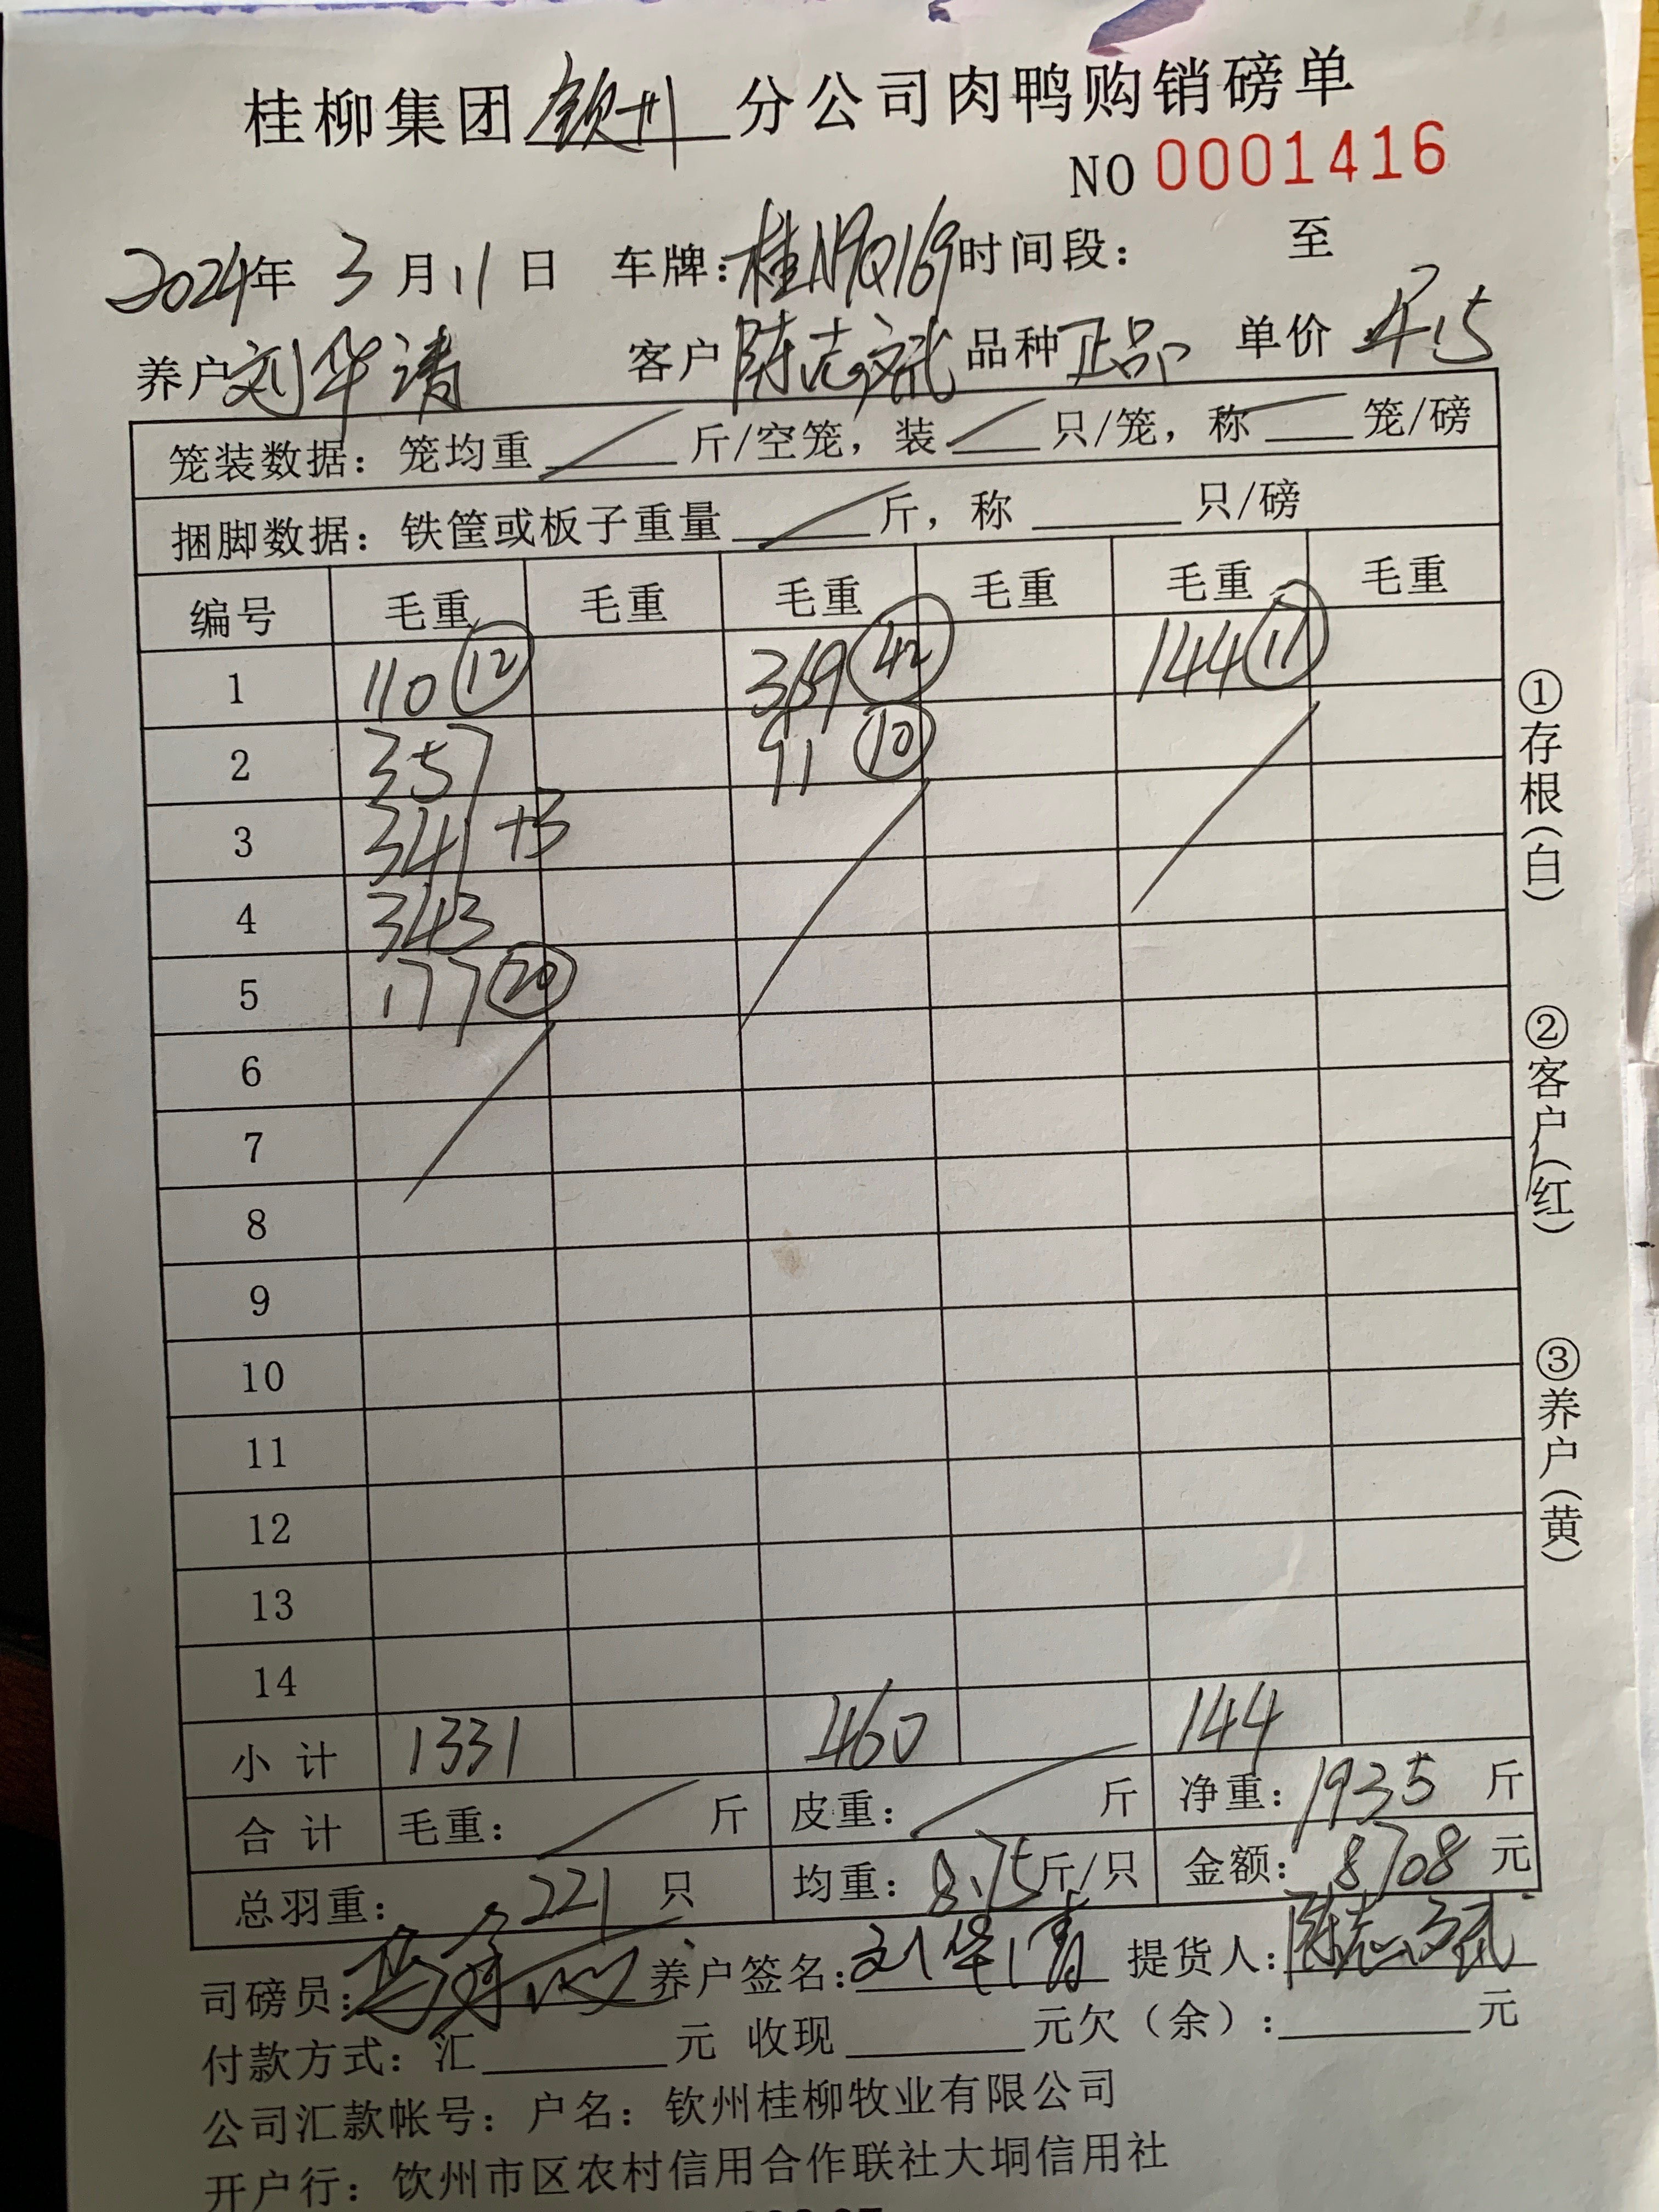 桂柳集团钦州分公司肉鸭购销磅单
NO 0001416
2024年 3月11日 车牌:桂N9Q169时间段: 至
养户刘华清 客户陈志斌 品种正品 单价4.5
笼装数据:笼均重 斤/空笼,装 只/笼,称 笼/磅
捆脚数据:铁筐或板子重量 斤,称 只/磅
编号 毛重 毛重 毛重 毛重 毛重 毛重
1 110 ⑫ 369 ㊷ 144 ⑪
2 357 91 ⑩
3 341 +3
4 343
5 177 ⑳
6
7
8
9
10
11
12
13
14
小计 1331 460 144
合计 毛重: 斤 皮重: 斤 净重:1935 斤
总羽重: 221 只 均重:8.75斤/只 金额:8708 元
司磅员: 养户签名:刘华清 提货人:陈志斌
付款方式:汇 元 收现 元欠(余): 元
公司汇款帐号:户名:钦州桂柳牧业有限公司
开户行:钦州市区农村信用合作联社大垌信用社
①存根(白)
②客户(红)
③养户(黄)